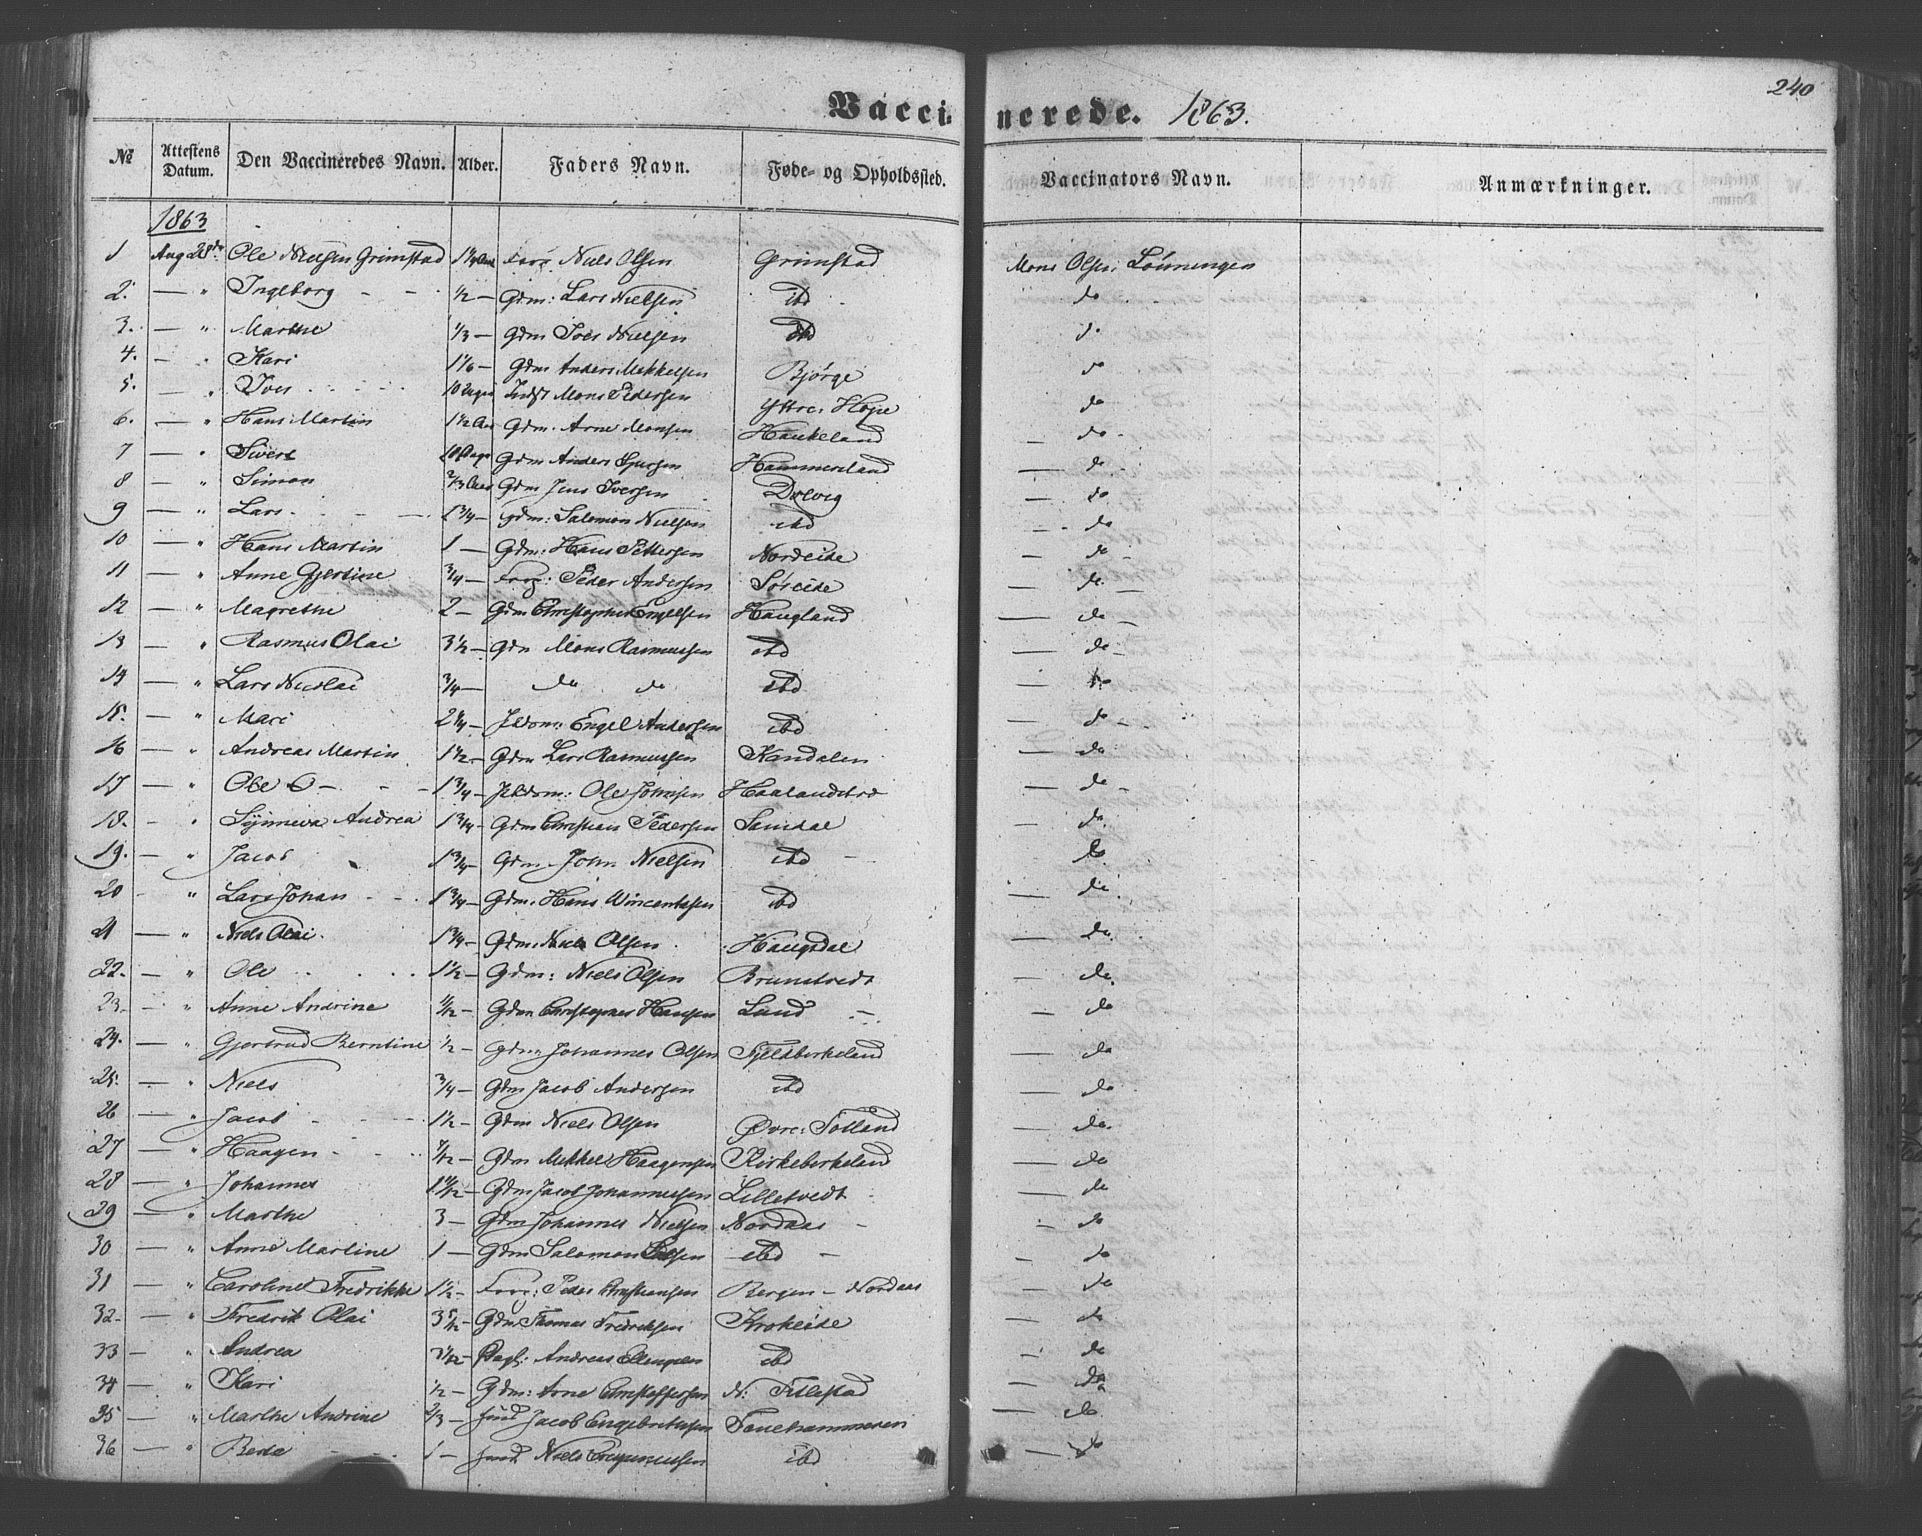 240
Vaccinerede. 1863.
№ Attestens Datum. Den Vaccineredes Navn. Alder. Faders Navn. Føde- og Opholdssted. Vaccinators Navn. Anmærkninger.
1863
1 Aug 28de Ole Nielsen Grimstad 1¼ Aar Niels Olsen Grimstad Mons Olsen Lønningen
2. — " Ingeborg ½ — Gdm: Lars Nielsen ibd do
3. — " Marthe ⅓ — Gdm Iver Nielsen ibd do
4. — " Kari 1⅙ — Gdm Anders Mikkelsen Bjørge do
5. — " Iver 10 Indst Mons Pedersen Yttre: Hope do
6. — " Hans Martin 1½ Aar Gdm. Arne Monsen Haukeland — do
7 — " Siver Gdm Anders Hammersland — do
8 — " Simon ⅔ Aar Gdm Jens Iversen Dolvig — do
9 — " Lars 1¾ — Gdm: Salomon Nielsen ibd — do
10 — " Hans Martin 1 — Gdm: Hans Pettersen Nordeide — do
11 — " Anne Gjertine ¾ — Peder Andersen Søreide — do
12 — " Magrethe 2 — Gdm Christopher Engelsen Haugland — do
13 — " Rasmus Olai 3½ — Gdm Mons Rasmussen ibd — do
14 — " Lars Nicolai ¾ — do do ibd — do
15. — " Mari 2¼ — Engel Andersen ibd — do
16 — " Andreas Martin 1½ — Gdm Lars Rasmussen Kandalen — do
17 — " Ole O — 1¾ — Ole Johnsen — do
18. — " Synneva Andrea 1¾ — Gdm Christian Pedersen Samdal — do
19. — " Jacob 1¾ — Gdm. John Nielsen ibd — do
20 — " Lars Johan 1¾ — Gdm. Hans Wincentsen ibd — do
21 — " Niels Olai 1¾ — Gdm: Niels Olsen Haugsdal — do
22. — " Ole 1½ — Gdm: Niels Olsen Brunstvedt — do
23. — " Anne Andrine Gdm Christopher Hansen Lund — do
24. — " Gjertrud Berntine ½ — Gdm Johannes Olsen Fjeldberkeland — do
25. — " Niels ¾ — Gdm Jacob Andersen ibd — do
26 — " Jacob 1½ — Gdm Niels Olsen Øvre: Totland — do
27 — " Haagen 7/12 — Gdm Mikkel Haagensen Kirkeberkeland — do
28 — " Johannes Gdm Jacob Johannessen Lilletvedt — do
29 — " Marthe 3 — Gdm Johannes Nielsen Nordaas — do
30 — " Anne Martine 1 — Gdm Salomon ibd — do
31 — " Caroline Fredrikke 1½ — Peder Christiansen Bergen — Nordaas — do
32. — " Fredrik Olai 3 5/12 — Gdm Thomas Fredriksen Krokeide — do
33 — " Andrea Andreas ibd — do
34 — " Kari ½ — Gdm: Arne Christoffersen N: Titlestad — do
35 — " Marthe Andrine ⅔ — Jacob Engebretsen — do
36 — " 1 — Niels ibd — do